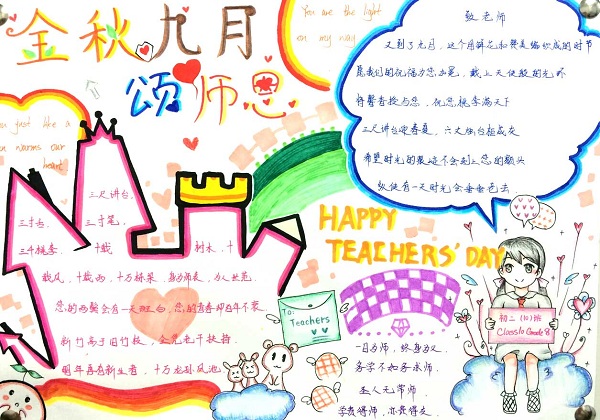 金秋九月
颂师恩
You are the light
on my way
You just like a
warms our
heart
致老师
又到了九月，这个用鲜花和赞美编织成的时节
让我们的祝福为您加冕，戴上天使般的光环
将馨香授与您，祝您桃李满天下
三尺讲台迎春夏
希望时光的
纵使有一天时光会
三尺讲台，
三寸舌，三寸笔，
三千桃李，十载树木，十
载风，十载雨，十万栋梁
您的两鬓会有一天斑白，您的青春却百年不衰
新竹高于旧竹枝，全凭老干扶持
明年再有新生者，十万龙孙绕凤池
HAPPY
TEACHERS' DAY
To:
Teachers
一日为师，终身为父
务学不如务求师
圣人无常师
学贵得师，亦贵得友
初二(10)班
Class10 Grade 8